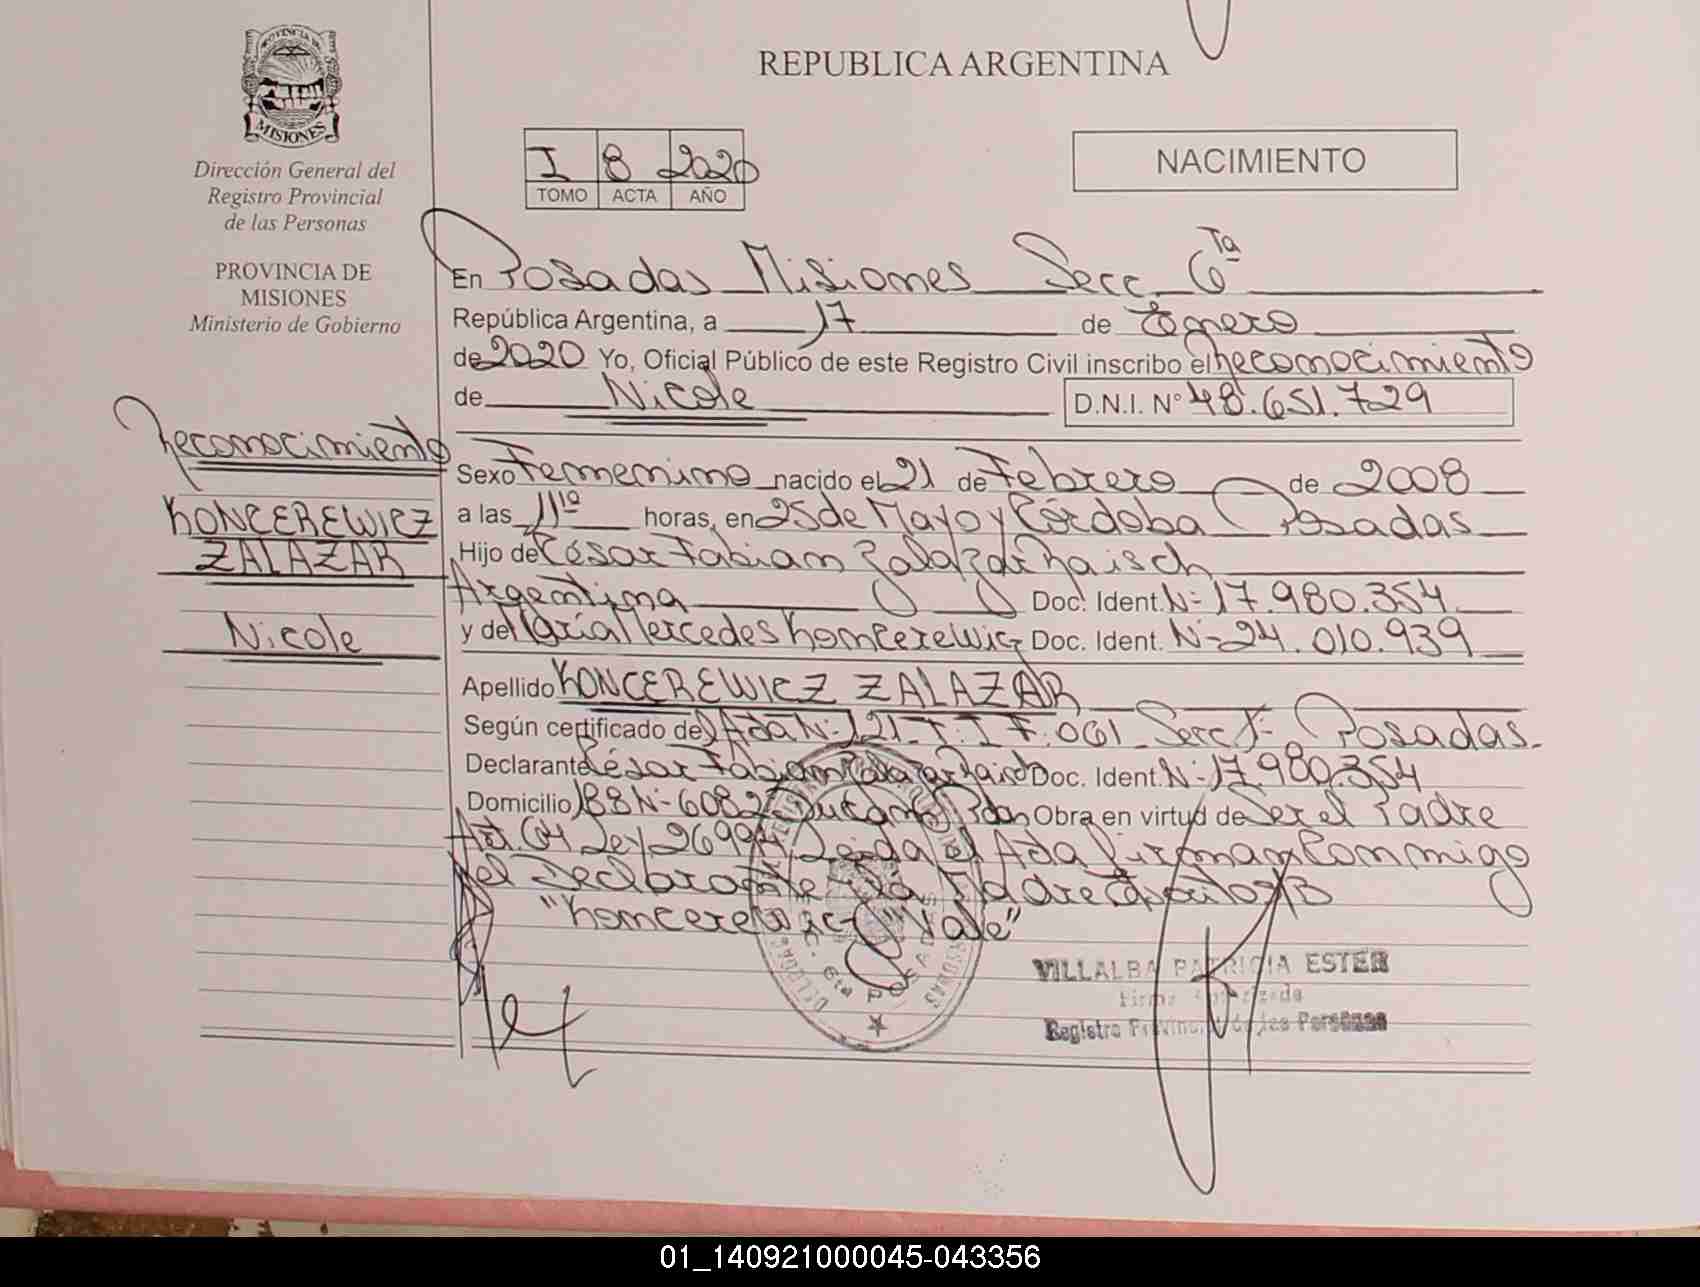 REPUBLICA ARGENTINA
MISIONES
Dirección General del
Registro Provincial
de las Personas
PROVINCIA DE
MISIONES
Ministerio de Gobierno
I 8 2020
TOMO ACTA AÑO
NACIMIENTO
En Posadas Misiones Secc 6ta
República Argentina, a 17 de Enero
de 2020 Yo, Oficial Público de este Registro Civil inscribo el Reconocimiento
de Nicole D.N.I. N° 48.651.729
Reconocimiento
KONCEREWICZ
ZALAZAR
Nicole
Sexo Femenino nacido el 21 de Febrero de 2008
a las 11 horas, en 25 de Mayo y Córdoba Posadas
Hijo de César Fabian Zalazar Raisch
Argentina Doc. Ident. N- 17.980.354
y de María Mercedes Koncerewicz Doc. Ident. N- 24.010.939
Apellido KONCEREWICZ ZALAZAR
Según certificado de Acta N- 121 T: I F: 061 Secc Posadas
Declarante César Fabian Zalazar Raisch Doc. Ident. N- 17.980.354
Domicilio 188 N- 6082 Obra en virtud de Ser el Padre
Art. 64 Ley 26994 Leida el Acta firman conmigo
el Declarante y la Madre
"Koncerewicz" "Vale"
VILLALBA PATRICIA ESTER
Firma Autorizada
Registro Provincial de las Personas
01_140921000045-043356